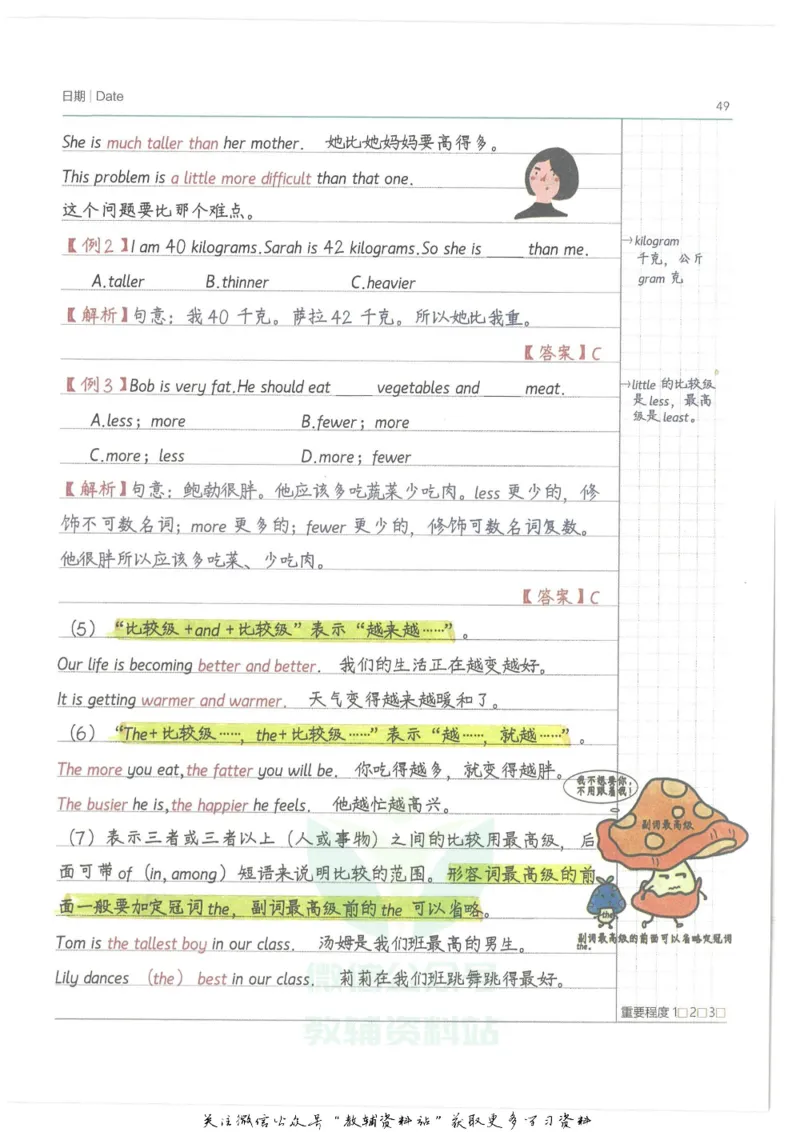 日期 | Date
49
She is much taller than her mother. 她比她妈妈要高得多。
This problem is a little more difficult than that one.
这个问题要比那个难点。
【例2】I am 40 kilograms.Sarah is 42 kilograms.So she is _____ than me.
A.taller B.thinner C.heavier
【解析】句意；我40 千克。萨拉42 千克。所以她比我重。
【答案】C
【例3】Bob is very fat.He should eat _____ vegetables and _____ meat.
A.less；more B.fewer；more
C.more；less D.more；fewer
【解析】句意；鲍勃很胖。他应该多吃蔬菜少吃肉。less 更少的，修
饰不可数名词；more 更多的；fewer 更少的，修饰可数名词复数。
他很胖所以应该多吃菜、少吃肉。
【答案】C
（5）“比较级+and+比较级”表示“越来越……”。
Our life is becoming better and better. 我们的生活正在越变越好。
It is getting warmer and warmer. 天气变得越来越暖和了。
（6）“The+比较级……，the+比较级……”表示“越……，就越……”。
The more you eat,the fatter you will be. 你吃得越多，就变得越胖。
The busier he is,the happier he feels. 他越忙越高兴。
（7）表示三者或三者以上（人或事物）之间的比较用最高级，后
面可带of（in，among）短语来说明比较的范围。形容词最高级的前
面一般要加定冠词the，副词最高级前的the 可以省略。
Tom is the tallest boy in our class. 汤姆是我们班最高的男生。
Lily dances （the） best in our class. 莉莉在我们班跳舞跳得最好。
→kilogram
千克，公斤
gram 克
→little 的比较级
是less，最高
级是least。
我不想要你，
不用跟着我！
副词最高级
the
副词最高级的前面可以省略定冠词
the.
重要程度 1□2□3□
微信公众号
教辅资料站
关注微信公众号“教辅资料站”获取更多学习资料